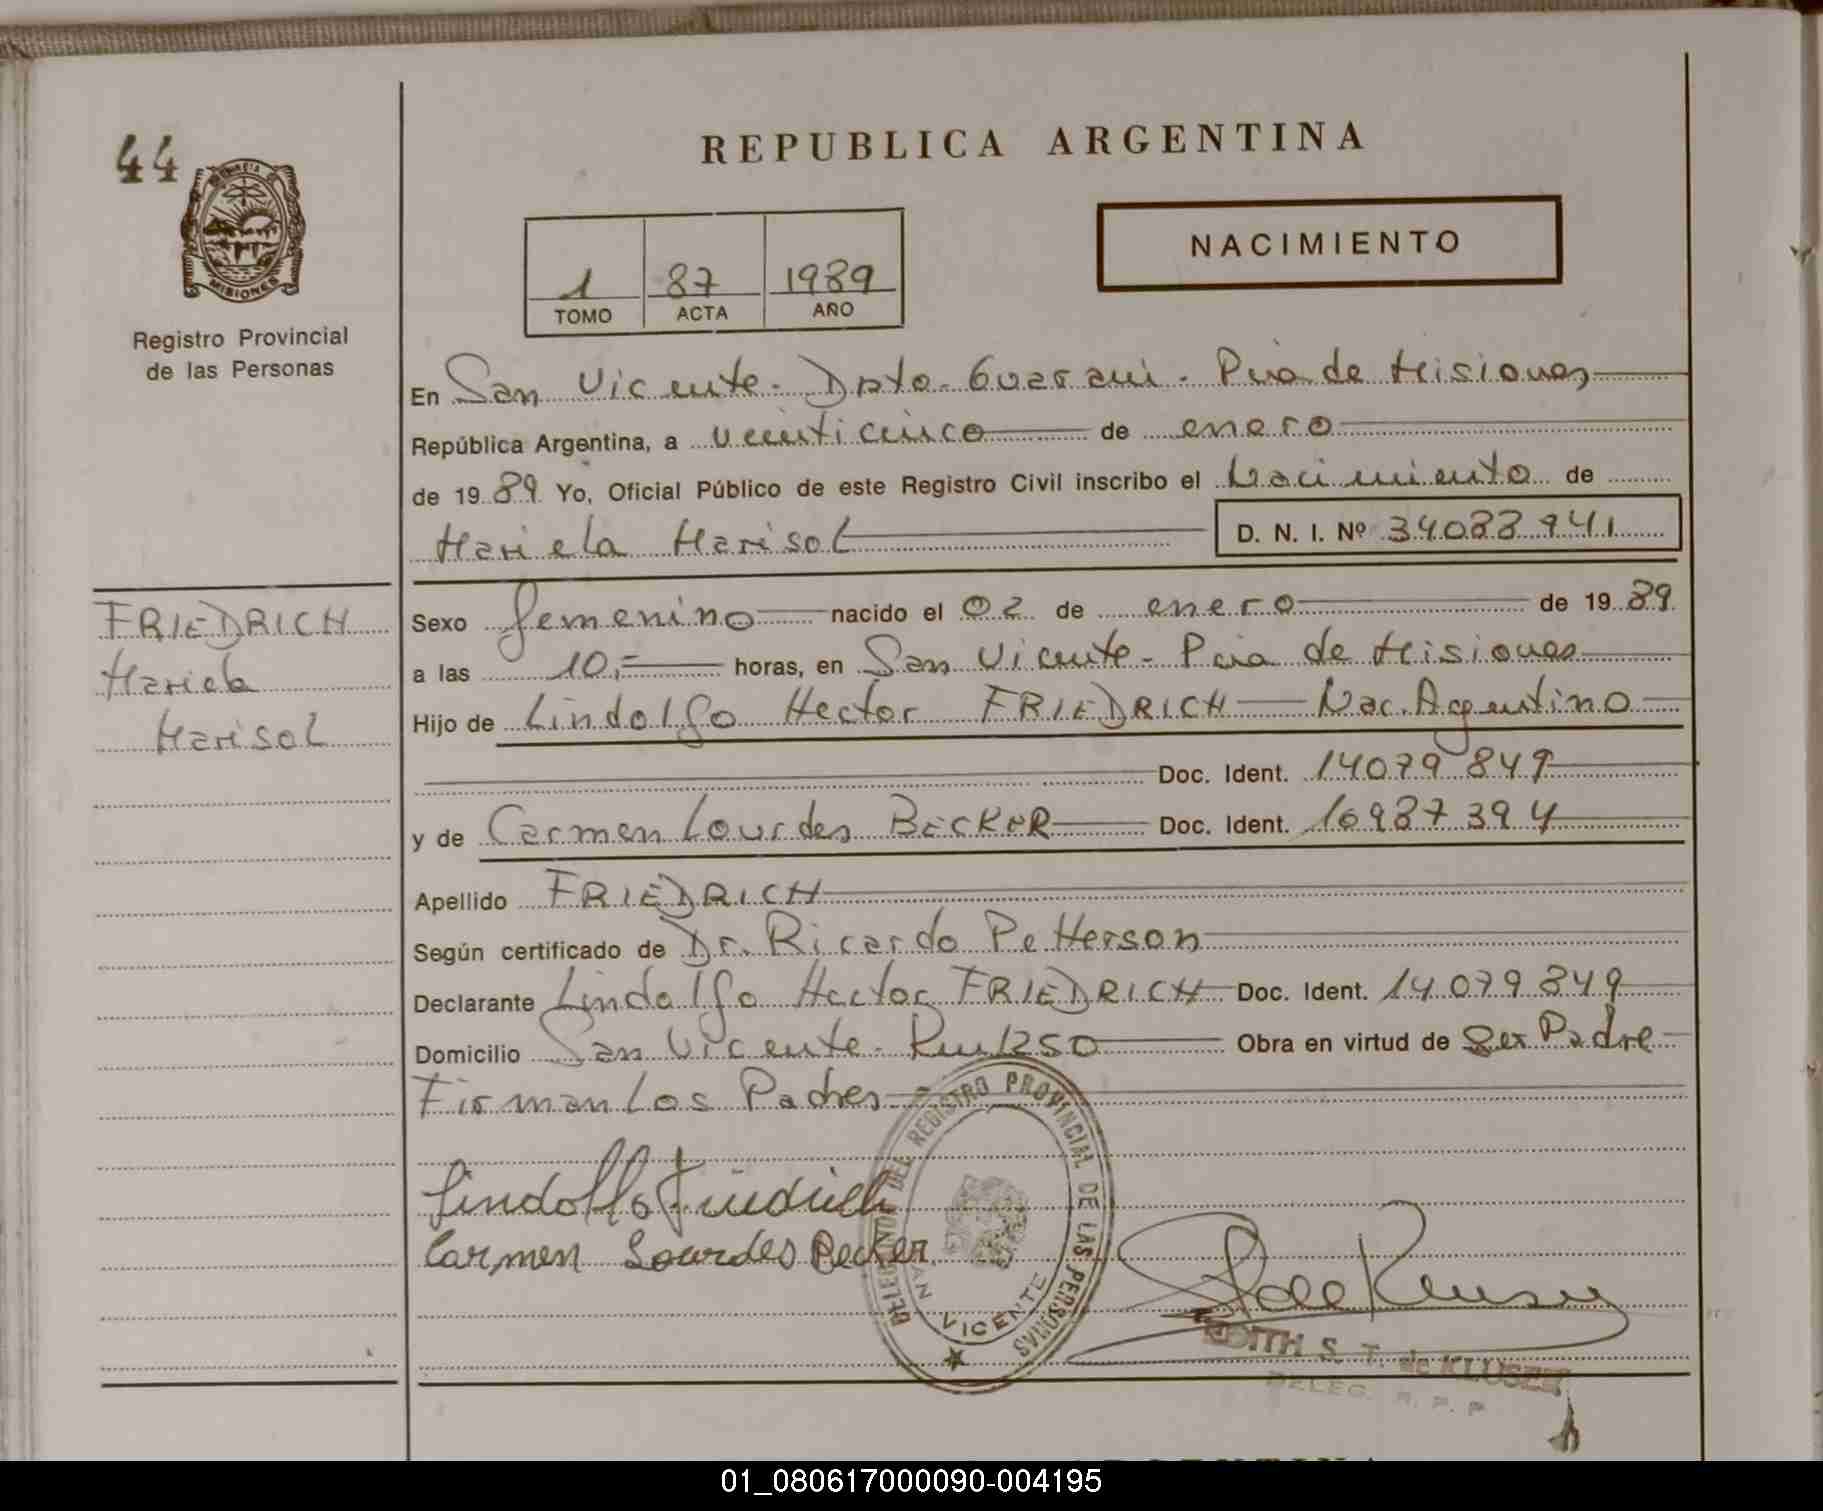 44
MISIONES
Registro Provincial
de las Personas
REPUBLICA ARGENTINA
NACIMIENTO
1 87 1989
TOMO ACTA AÑO
En San Vicente - Dpto. Guarani - Pcia de Misiones
República Argentina, a veinticinco de enero
de 19 89 Yo, Oficial Público de este Registro Civil inscribo el Nacimiento de
Mariela Marisol D. N. I. Nº 34083941
FRIEDRICH
Mariela
Marisol
Sexo femenino nacido el 02 de enero de 19 89
a las 10,= horas, en San Vicente - Pcia de Misiones
Hijo de Lindolfo Hector FRIEDRICH Nac. Argentino
Doc. Ident. 14079849
y de Carmen Lourdes BECKER Doc. Ident. 16987394
Apellido FRIEDRICH
Según certificado de Dr. Ricardo Petterson
Declarante Lindolfo Hector FRIEDRICH Doc. Ident. 14.079.849
Domicilio San Vicente - Km 1250 Obra en virtud de Ser Padre
Firman Los Padres
Lindolfo Friedrich
Carmen Lourdes Becker
DELEGACION DEL REGISTRO PROVINCIAL DE LAS PERSONAS
SAN VICENTE
EDITH S. T. de KLUSZE
DELEG. R. P. P
01_080617000090-004195